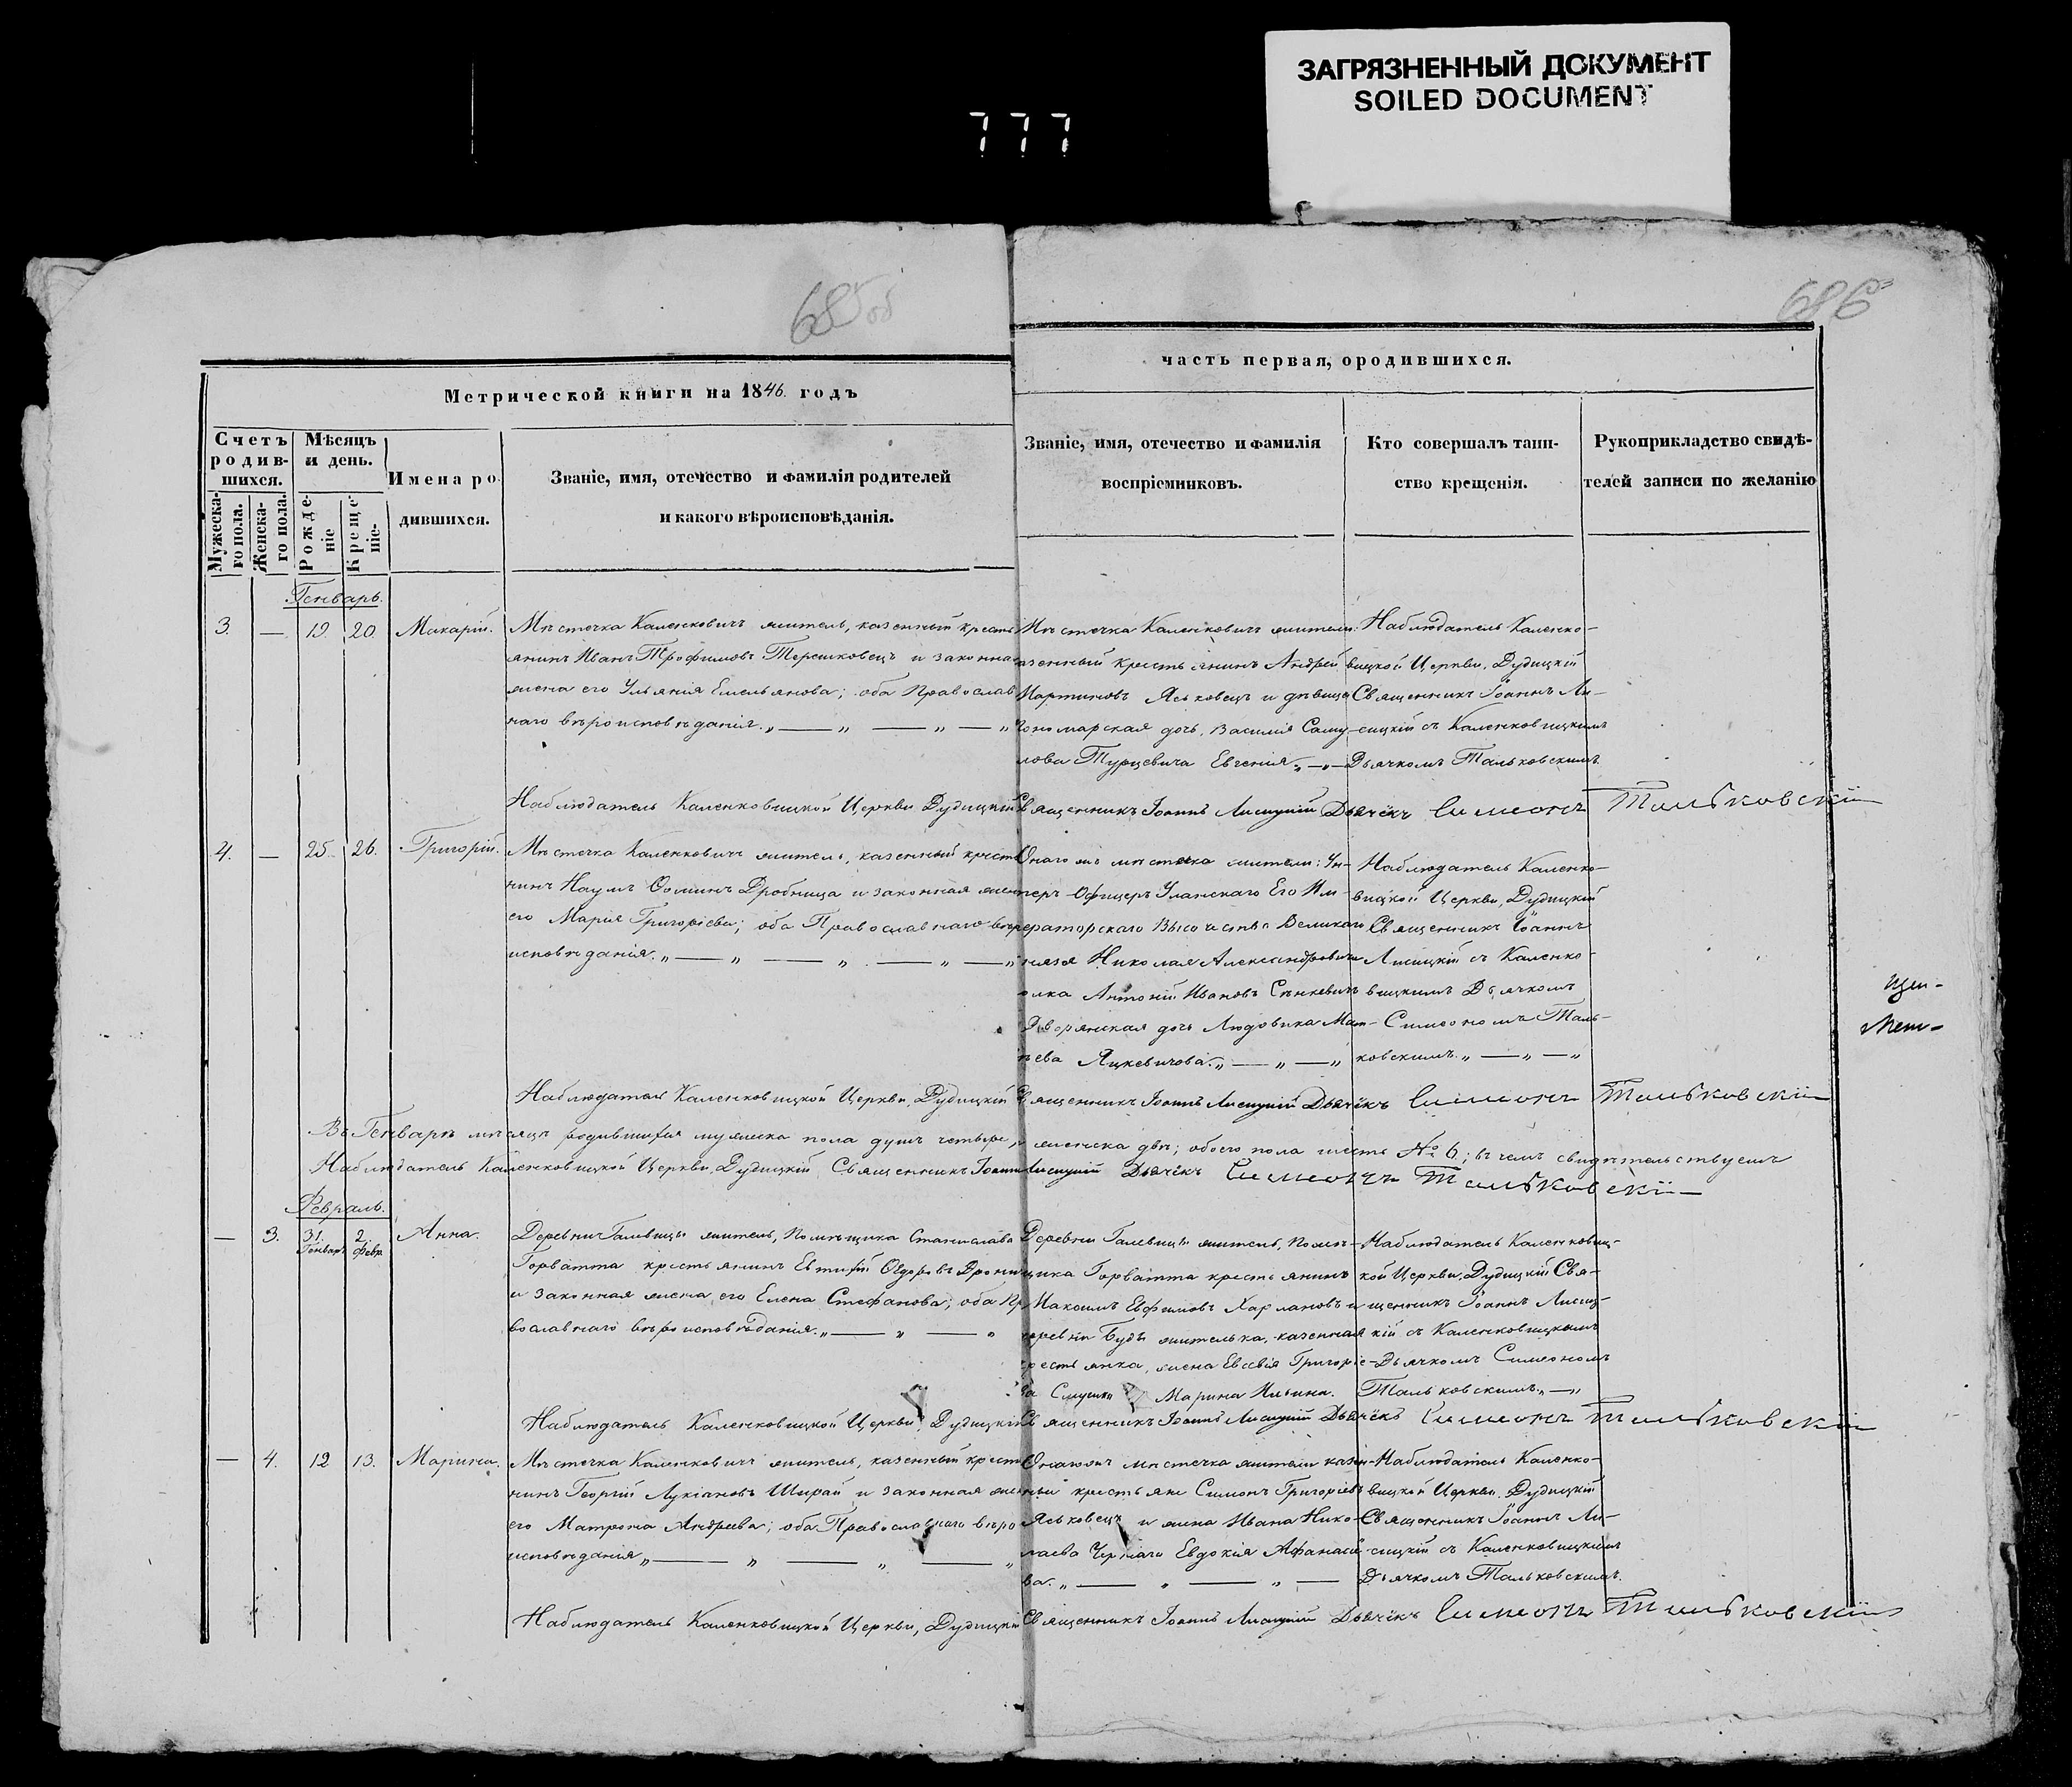 ЗАГРЯЗНЕННЫЙ ДОКУМЕНТ
SOILED DOCUMENT
777
685 об
686
Метрической книги на 1846. годъ
часть первая, ородившихся.
Счетъ родив-шихся.
Мѣсяцъ и день.
Имена ро-дившихся.
Званіе, имя, отечество и фамилія родителей
и какого вѣроисповѣданія.
Званіе, имя, отечество и фамилія
воспріемниковъ.
Кто совершалъ таин-
ство крещенія.
Рукоприкладство свидѣ-
телей записи по желанію
Мужеска-го пола.
Женска-го пола.
Рожде-ніе
Креще-ніе-
Генварь.
3. — 19 20. Макарій.
Мѣстечка Каленковичъ житель, казенный кресть
янинъ Иванъ Трофимовъ Терешковецъ и законная
жена его Ульянія Емельянова; оба Православ
наго вѣроисповѣданія. „ — „ — „ — „
Мѣстечка Каленковичъ жители:
азенный крестьянинъ Андрей
Мартиновъ Яськовецъ и дѣвица
Пономарская дочь, Василія Саму-
лова Турцевича Евгенія. „ — „ —
Наблюдатель Каленко-
вицкой Церкви, Дудицкій
Священникъ Іоаннъ Ли-
сицкій съ Каленковицкимъ
Дьячкомъ Тальковскимъ.
Наблюдатель Каленковицкой Церкви Дудицкій Священникъ Іоаннъ Лисицкій Дьячекъ Симеонъ Тальковскій
4. — 25. 26. Григорій.
Мѣстечка Каленковичъ житель, казенный кресть
нинъ Наумъ Ѳоминъ Дробница и законная жен
его Марія Григоріева; оба Православнаго вѣр
исповѣданія. „ — „ — „ — „ — „
Онаго жъ мѣстечка жители: Ун-
теръ-Офицеръ Уланскаго Его Им-
ператорскаго Высочества Великаго
Князя Николая Александровича
олка Антоній Ивановъ Сѣнкевичъ
Дворянская дочь Людовика Мат-
ѣева Яцкевичова. „ — „ — „
Наблюдатель Каленко-
вицкой Церкви, Дудицкій
Священникъ Іоаннъ
Лисицкій съ Каленко-
вицкимъ Дьячкомъ
Симеономъ Таль-
ковскимъ. „ — „ — „
щен-
Мет-
Наблюдатель Каленковицкой Церкви, Дудицкій Священникъ Іоаннъ Лисицкій Дьячекъ Симеонъ Тальковскій
Въ Генварѣ мѣсяцѣ родившихся мужеска пола душъ четыре, женска двѣ; обоего пола шесть № 6; въ чемъ свидѣтельствуемъ
Наблюдатель Каленковицкой Церкви, Дудицкій Священникъ Іоаннъ Лисицкій Дьячекъ Симеонъ Тальковскій
Февраль.
— 3. 31. Генваря 2. Февр. Анна.
Деревни Галевицы житель, Помѣщика Станислава
Горватта крестьянинъ Евтихій Ѳедоровъ Дрони
и законная жена его Елена Стефанова; оба Пр
вославнаго вѣроисповѣданія. „ — „ — „
Деревни Галевицы житель, Помѣ-
щика Горватта крестьянинъ
Максимъ Евфимовъ Харлановъ и
еревни Будъ жителька, казенная
крестьянка, жена Евсевія Григоріе-
ва Марина Ильина.
Наблюдатель Каленковиц-
кой Церкви, Дудицкій Свя-
щенникъ Іоаннъ Лисиц-
кій съ Каленковицкимъ
Дьячкомъ Симеономъ
Тальковскимъ. „ — „
Наблюдатель Каленковицкой Церкви, Дудицкій Священникъ Іоаннъ Лисицкій Дьячекъ Симеонъ Тальковскій
— 4. 12 13. Марина.
Мѣстечка Каленковичъ житель, казенный кресть
нинъ Георгій Лукіановъ Ширай и законная жен
его Матрона Андреева; оба Православнаго вѣро
исповѣданія „ — „ — „ — „
Онагожъ мѣстечка жители казен-
ныи крестьяне Симонъ Григоріевъ
Яськовецъ и жена Ивана Нико-
лаева Чернаго Евдокія Афанасіе-
ва. „ — „ — „ —
Наблюдатель Каленко-
вицкой Церкви, Дудицкій
Священникъ Іоаннъ Ли-
сицкій съ Каленковицкимъ
Дьячкомъ Тальковскимъ.
Наблюдатель Каленковицкой Церкви, Дудицкій Священникъ Іоаннъ Лисицкій Дьячекъ Симеонъ Тальковскій